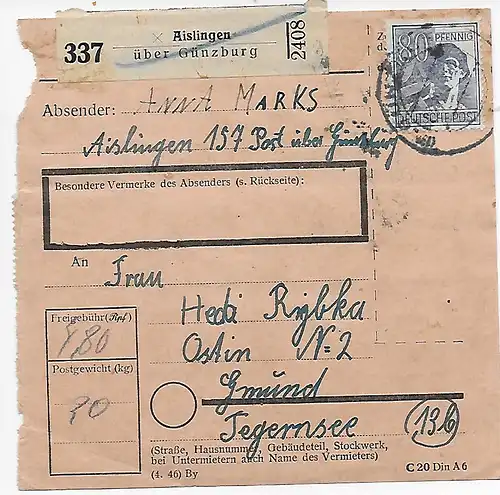 337
× Aislingen
über Günzburg
2408
80 PFENNIG
DEUTSCHE POST
Absender: ANNA MARKS
Aislingen 157 Post über Günzburg
Besondere Vermerke des Absenders (s. Rückseite):
An
Frau
Hedi Rybka
Ostin No 2
Gmünd
Tegernsee (13b)
Freigebühr (Rpf)
Postgewicht (kg)
20
(Straße, Hausnummer, Gebäudeteil, Stockwerk,
bei Untermietern auch Name des Vermieters)
(4. 46) By
C 20 Din A 6